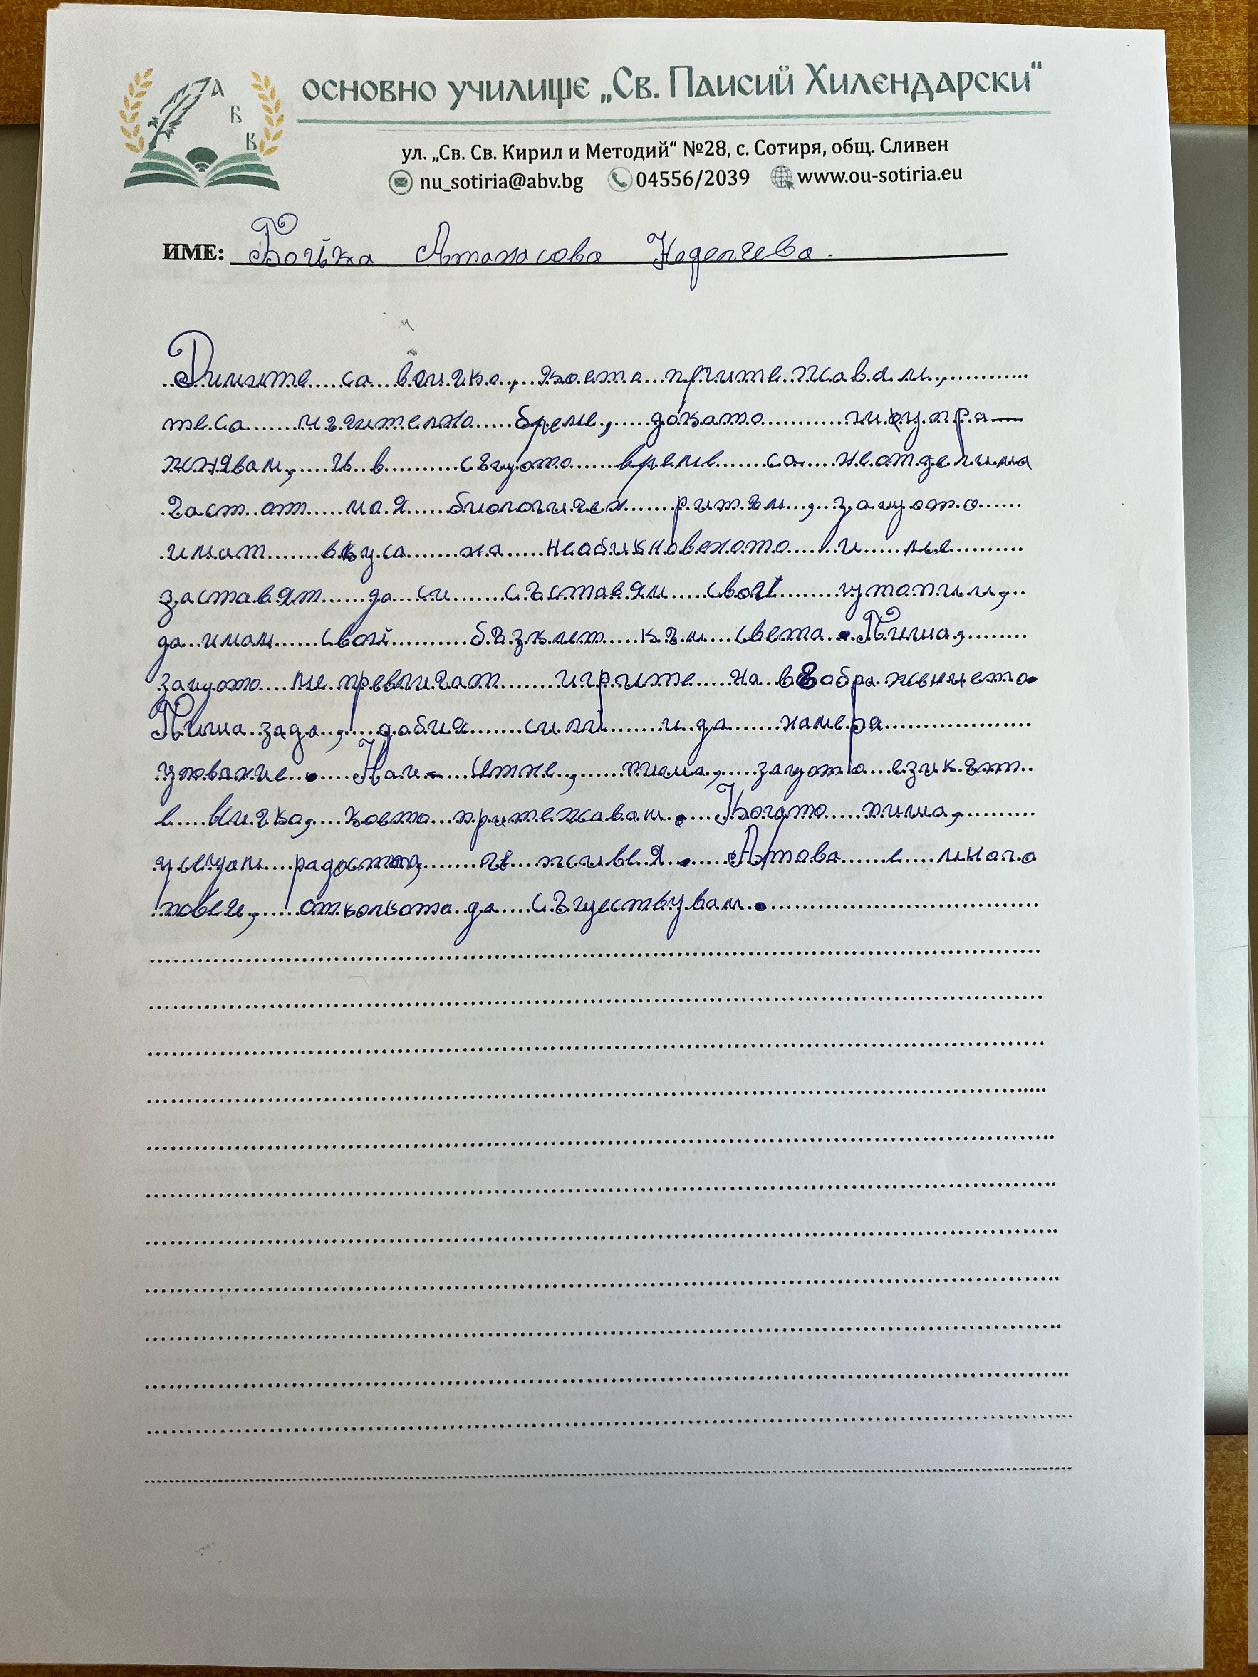 А
Б
В
ОСНОВНО УЧИЛИЩЕ „СВ. ПАИСИЙ ХИЛЕНДАРСКИ“
ул. „Св. Св. Кирил и Методий“ №28, с. Сотиря, общ. Сливен
nu_sotiria@abv.bg 04556/2039 www.ou-sotiria.eu
ИМЕ: Бойка Атанасова Неделчева.
са всичко, което притежавам,
те са време, докато ги упра-
жнявам, и в същото време са неотделима
част от моя биологичен ритъм, защото
имат вкуса на необикновеното и ме
заставят да си съставям свои утопии,
да имам свой към света. Пиша,
защото ме превличат игрите на въображението.
Пиша за да, добия сили и да намеря
упование. Най- сетне, пиша, защото езикът
е всичко, което притежавам. Когато пиша,
усещам радостта, че живея. А това е много
повеч, отколкото да съществувам.